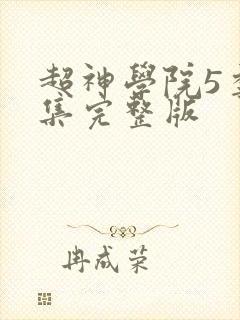 超神學院5季
集完整版
冉成荣